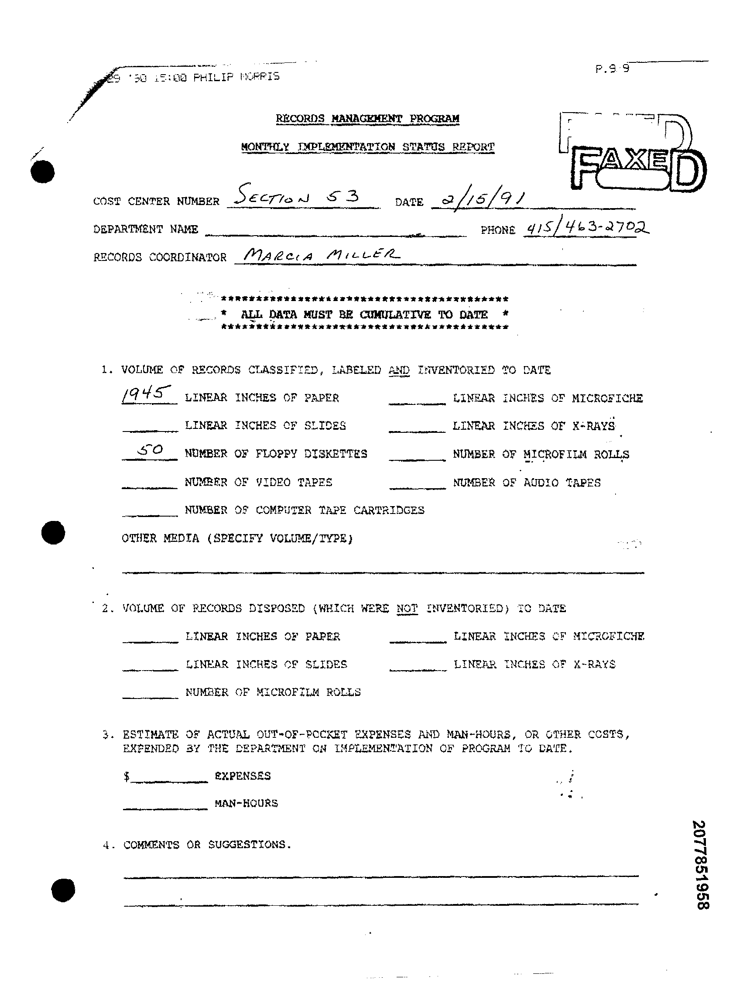 29 '90 15:00 PHILIP MORRIS P.9/9
RECORDS MANAGEMENT PROGRAM
MONTHLY IMPLEMENTATION STATUS REPORT
FAXED
COST CENTER NUMBER SECTION 53 DATE 2/15/91
DEPARTMENT NAME PHONE 415/463-2702
RECORDS COORDINATOR MARCIA MILLER
*****************************************
* ALL DATA MUST BE CUMULATIVE TO DATE *
*****************************************
1. VOLUME OF RECORDS CLASSIFIED, LABELED AND INVENTORIED TO DATE
1945 LINEAR INCHES OF PAPER LINEAR INCHES OF MICROFICHE
LINEAR INCHES OF SLIDES LINEAR INCHES OF X-RAYS
50 NUMBER OF FLOPPY DISKETTES NUMBER OF MICROFILM ROLLS
NUMBER OF VIDEO TAPES NUMBER OF AUDIO TAPES
NUMBER OF COMPUTER TAPE CARTRIDGES
OTHER MEDIA (SPECIFY VOLUME/TYPE)
2. VOLUME OF RECORDS DISPOSED (WHICH WERE NOT INVENTORIED) TO DATE
LINEAR INCHES OF PAPER LINEAR INCHES OF MICROFICHE
LINEAR INCHES OF SLIDES LINEAR INCHES OF X-RAYS
NUMBER OF MICROFILM ROLLS
3. ESTIMATE OF ACTUAL OUT-OF-POCKET EXPENSES AND MAN-HOURS, OR OTHER COSTS,
EXPENDED BY THE DEPARTMENT ON IMPLEMENTATION OF PROGRAM TO DATE.
$ EXPENSES
MAN-HOURS
4. COMMENTS OR SUGGESTIONS.
2077851958